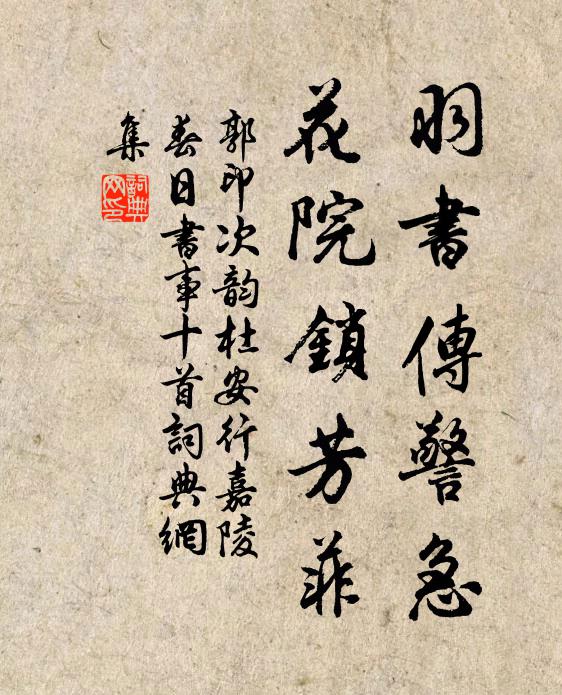 羽書傳警急
花院鎖芳菲
郭印次韵杜安行嘉陵
春日書事十首詞典網
集
詞典
网印